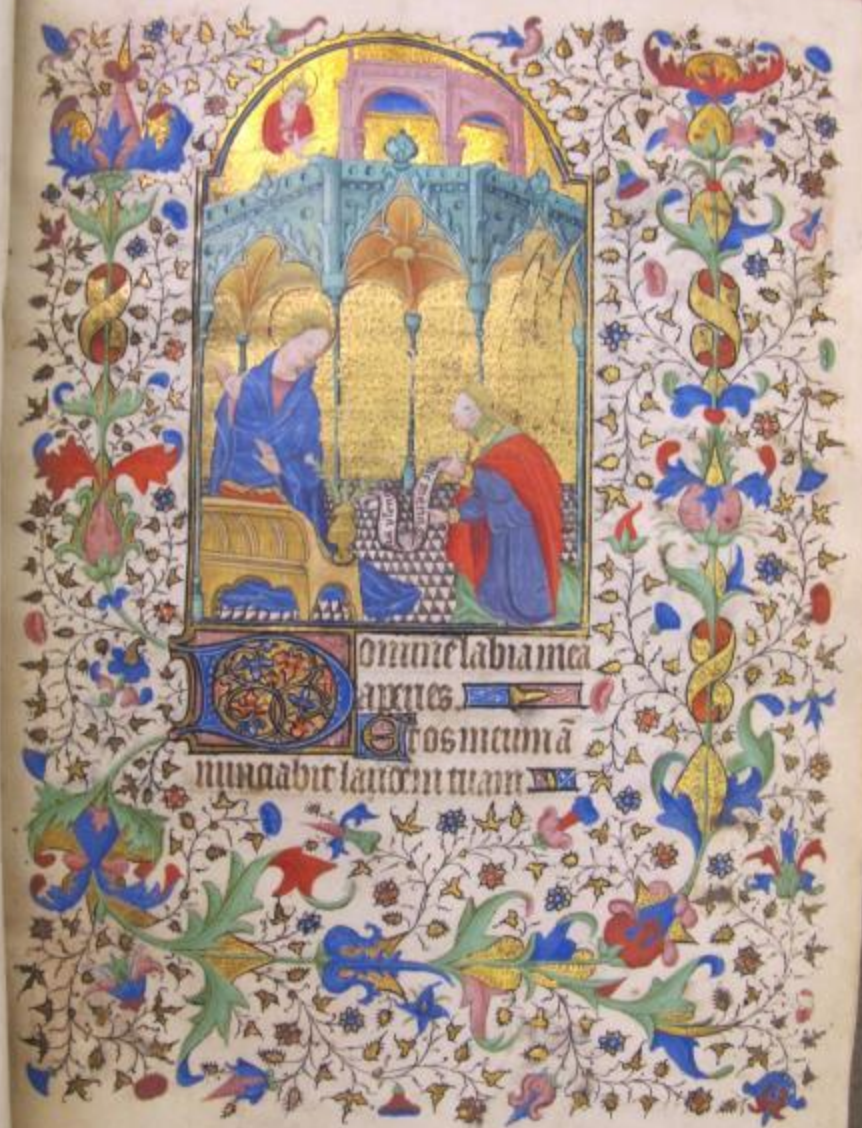 Domine labia mea
aperies.
Et os meum ā
nunciabit laudem tuam